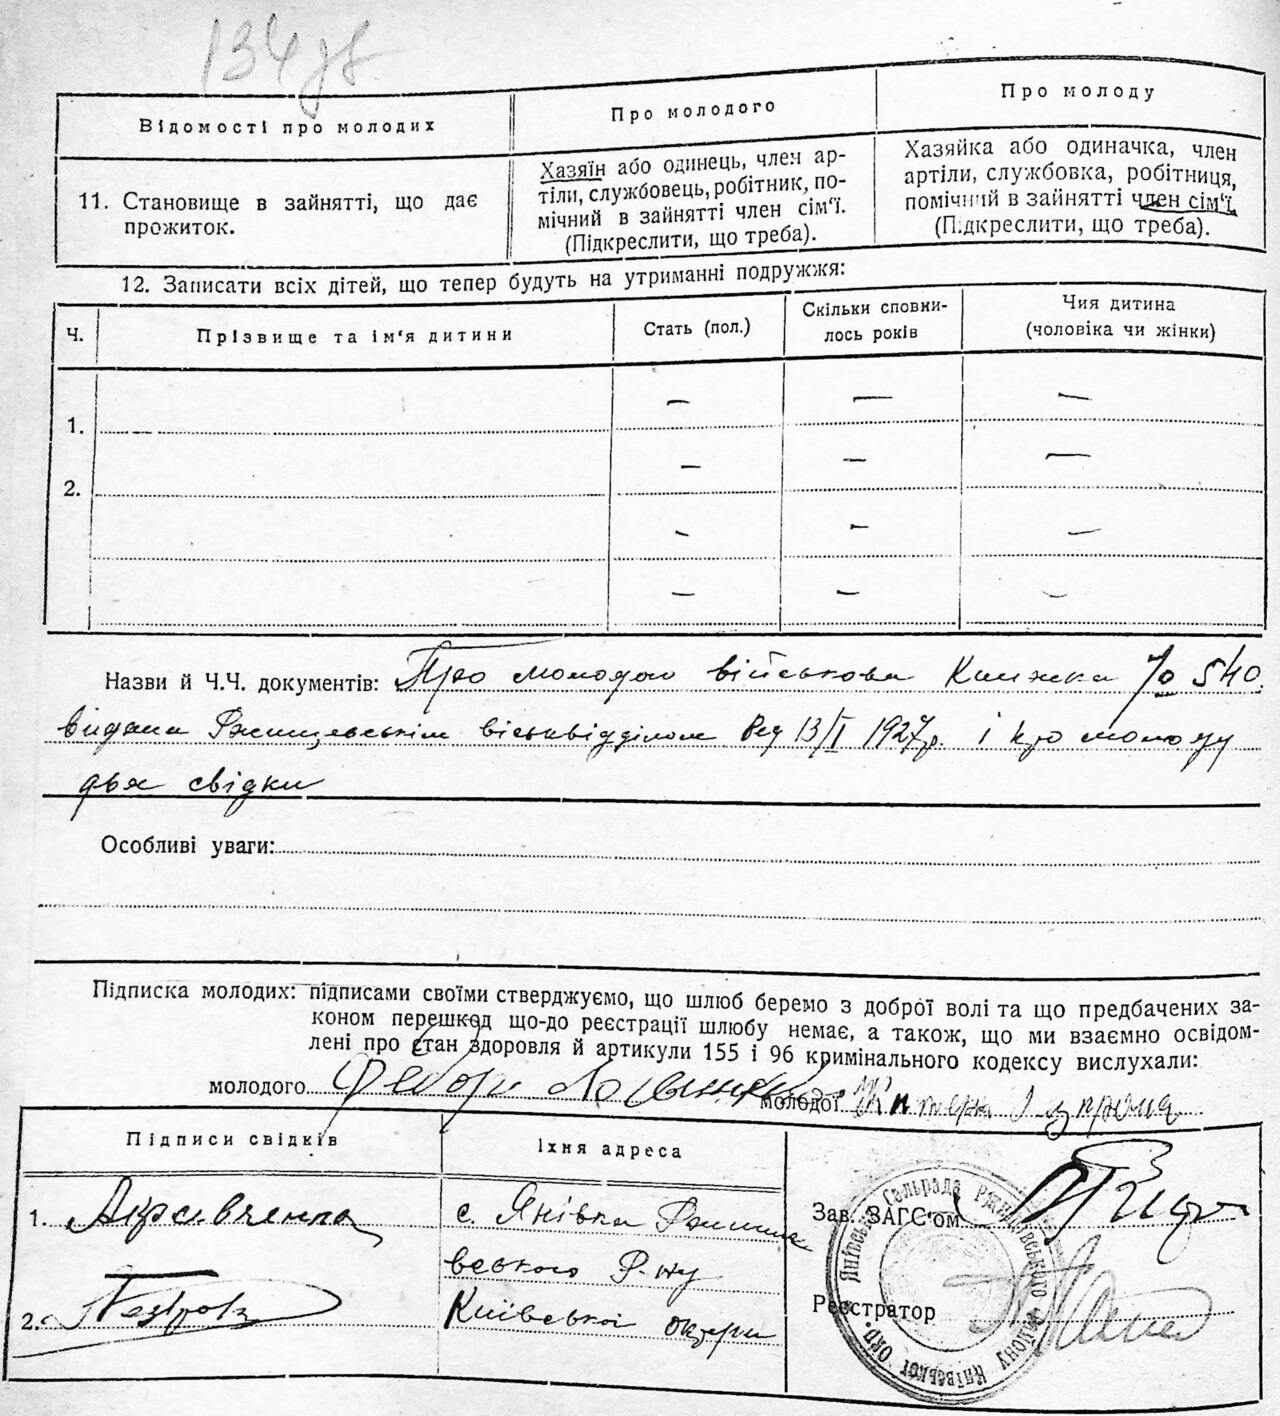 134
Відомості про молодих
Про молодого
Про молоду
11. Становище в зайнятті, що дає
прожиток.
Хазяїн або одинець, член ар-
тіли, службовець, робітник, по-
мічний в зайнятті член сім'ї.
(Підкреслити, що треба).
Хазяйка або одиначка, член
артіли, службовка, робітниця,
помічний в зайнятті член сім'ї.
(Підкреслити, що треба).
12. Записати всіх дітей, що тепер будуть на утриманні подружжя:
Ч.
Прізвище та ім'я дитини
Стать (пол.)
Скільки сповни-
лось років
Чия дитина
(чоловіка чи жінки)
1. — — —
2. — — —
— — —
— — —
Назви й Ч.Ч. документів: Про молодого військова Книжка 540
видана Ржищевським війсьвідділом 13/I 1927р. і про молоду
два свідки
Особливі уваги:
Підписка молодих: підписами своїми стверджуємо, що шлюб беремо з доброї волі та що предбачених за-
коном перешкод що-до реєстрації шлюбу немає, а також, що ми взаємно освідом-
лені про стан здоровля й артикули 155 і 96 кримінального кодексу вислухали:
молодого Федор молодої
Підписи свідків
Їхня адреса
1. Кравченко
с. Янівка Ржище
вського Р-ну
2. Петров
Київської округи
Зав. ЗАГС'ом
Реєстратор
Янівська Сельрада Ржищівського району Київської окр.